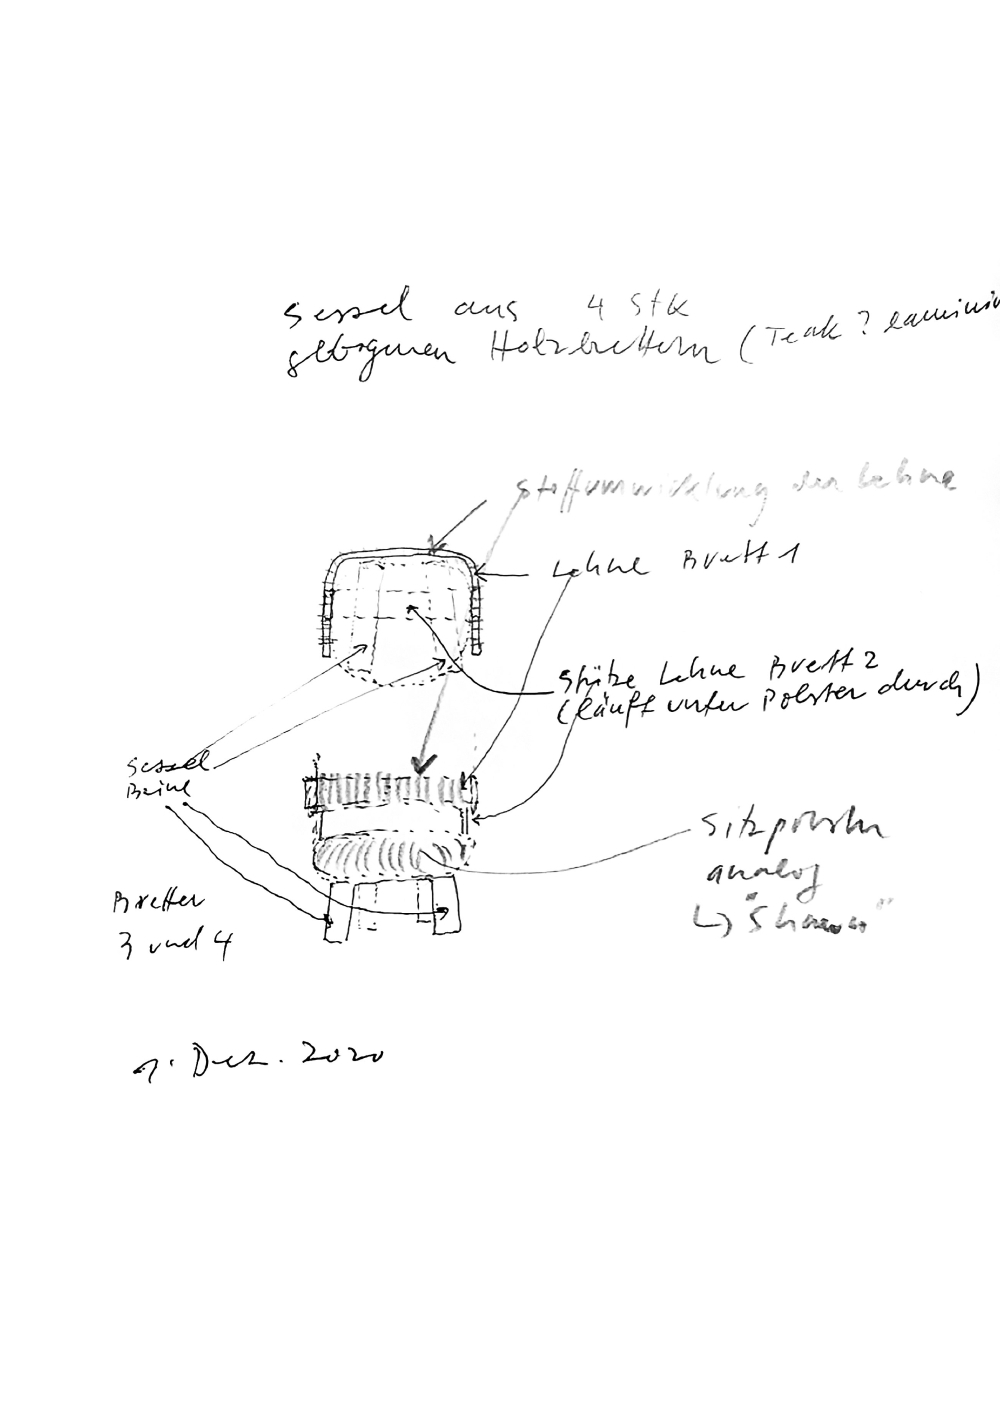 Sessel aus 4 Stk
gebogenen Holzbrettern (Teak? laminie
Stoffumwicklung der Lehne
Lehne Brett 1
Stütze Lehne Brett 2
(läuft unter Polster durch)
Sessel
Beine
Sitzpolster
analog
Bretter
3 und 4
1. Dez. 2020